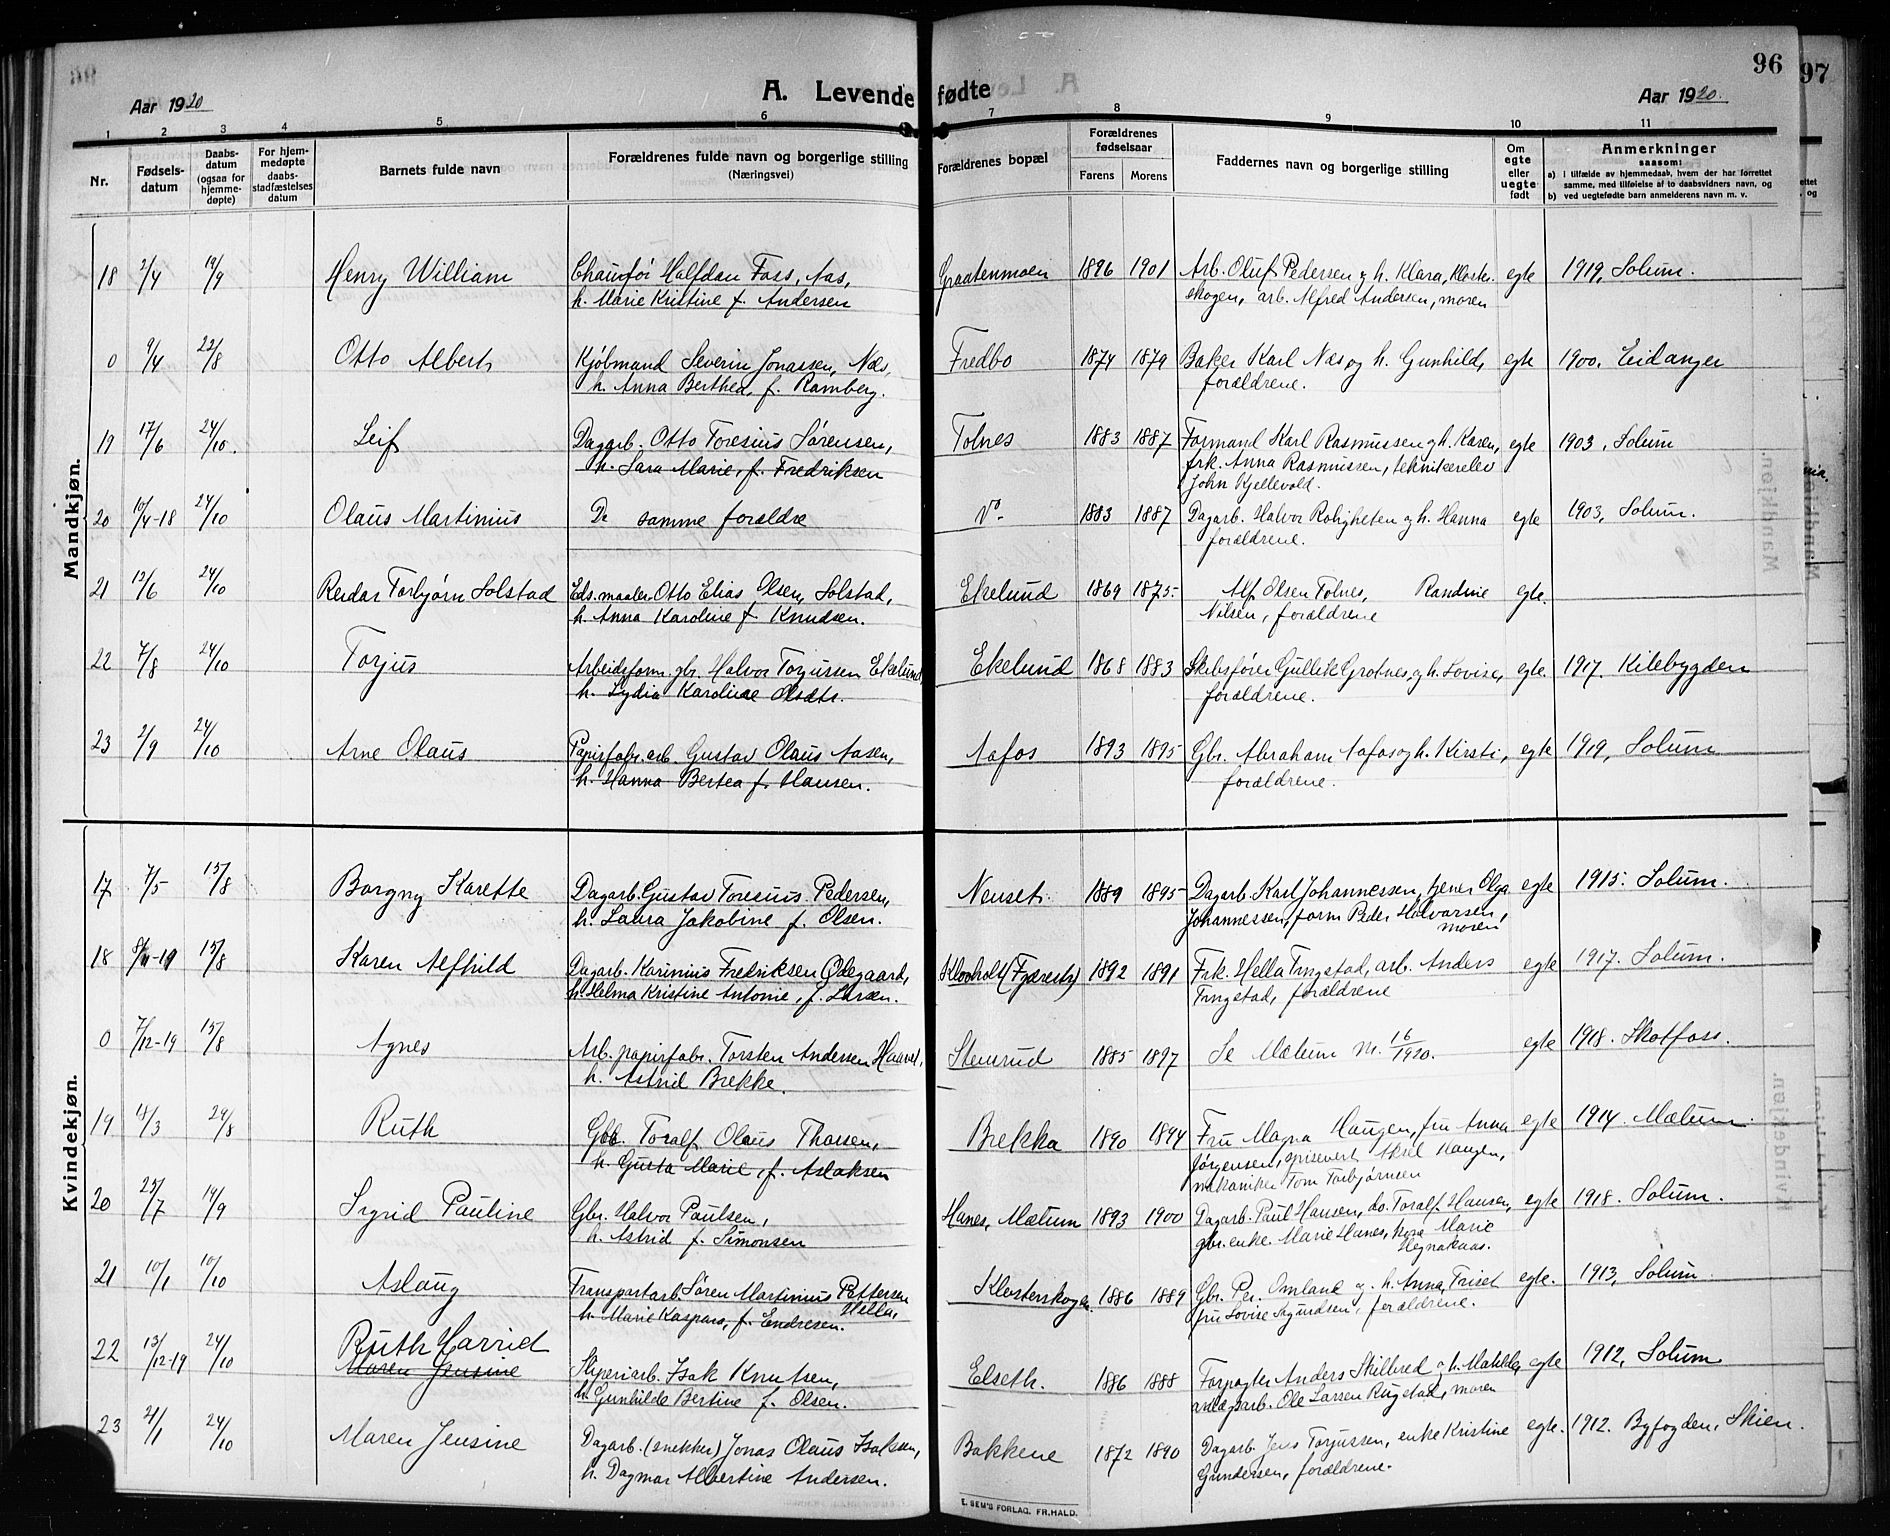 96
Aar 1920
A. Levende fødte
Aar 1920.
97
1 2 3 4 5 6 7 8 9 10 11
Nr.
Fødsels-
datum
Daabs-
datum
(ogsaa for
hjemme-
døpte)
For hjem-
medøpte
daabs-
stadfæstelses
datum
Barnets fulde navn
Forældrenes fulde navn og borgerlige stilling
(Næringsvei)
Forældrenes bopæl
Forældrenes
fødselsaar
Farens Morens
Faddernes navn og borgerlige stilling
Om
egte
eller
uegte
født
Anmerkninger
saasom:
a) I tilfælde av hjemmedaab, hvem der har forrettet
samme, med tilføielse af to daabsvidners navn, og
b) ved uegtefødte barn anmelderens navn m. v.
Mandkjøn.
18 2/4 19/9 Henry William Chaufför Halfdan Foss, Aas, Graatenmoen 1896 1901 Arb. Oluf Pedersen og h. Klara, Kloster- egte 1919, Solum.
h. Marie Kristine f. Andersen skogen, arb. Alfred Andersen, moren
0 9/4 22/8 Otto Albert Kjøbmand Severin Jonassen, Næs, Fredbo 1874 1879 Baker Karl Næs og h. Gunhild, egte 1900, Eidanger
h. Anna Berthea, f. Ramberg. forældrene.
19 17/6 24/10. Leif Dagarb. Otto Toresius Sørensen, Tolnes 1883 1887 Formand Karl Rasmussen og h. Karen, egte 1903, Solum
h. Sara Marie, f. Fredriksen frk. Anna Rasmussen, teknikerelev
John Kjellevold.
20 10/4-18 24/10 Olaus Martinius De samme forældre Do. 1883 1887 Dagarb. Halvor Roligheten og h. Hanna egte 1903, Solum.
forældrene.
21 12/6 24/10 Reidar Torbjørn Solstad Eds.maaler Otto Elias Olsen, Solstad, Ekelund 1869 1875 Alf Olsen Tolnes, Randine egte.
h. Anna Karoline f. Knudsen. Nilsen, forældrene
22 7/8 24/10 Torjus Arbeidsform. gbr. Halvor Torjussen Ekelund Ekelund 1868 1883 Skibsfører Gullik Grotnes og h. Lovise, egte. 1917. Kilebygden
h. Lydia Karoline Olsdtr. forældrene.
23 2/9 24/10 Arne Olaus Papirfabr.arb. Gustav Olaus Aasen, Aafos 1893 1895 Gbr. Abraham Aafos og h. Kirsti, egte 1919, Solum
h. Hanna Bertea f. Hansen. forældrene.
Kvindekjøn.
17 7/5 15/8 Borgny Karette Dagarb. Gustav Toresius Pedersen, Nenset. 1889 1895 Dagarb. Karl Johannessen, tjener Olga egte 1915. Solum.
h. Laura Jakobine f. Olsen. Johannessen, form Peder Halvorsen,
moren
18 15/8 Karen Alfhild Dagarb. Karinius Fredriksen Ødegaard, Klovholt 1892 1891 Frk. Hella Tingstad, arb. Anders egte 1917. Solum.
h. Helma Kristine Antonie, f. Larsen. Tingstad, forældrene
0 7/12-19 15/8 Agnes Arb. papirfabr. Torsten Andersen Stenrud 1885 1897 Se Mælum nr. 16/1920. egte 1918. Skotfoss.
h. Astrid Brekke.
19 18/3 29/8 Ruth Gbr. Toralf Olaus Thorsen, Brekka 1890 1894 Fru Magna Haugen, fru Anna egte 1914. Mælum.
h. Gusta Marie, f. Aslaksen Jørgensen, spisevert Aksel Haugen,
mekaniker Tom Torbjørnsen
20 25/7 19/9 Sigrid Pauline Gbr. Halvor Paulsen, Hanes, Mælum 1893 1900 Dagarb. Paul Hansen, do. Toralf Hansen, egte 1918. Solum.
h. Astrid f. Simonsen gbr. enke. Marie Hanes, Marie
21 10/1 10/10 Aslaug Transportarb. Søren Martinius Pettersen Klosterskogen. 1886 1889 Gbr. Per. Omland og h. Anna, egte. 1913, Solum.
Hella, h. Marie Kaspara, f. Endresen. fru Lovise Sigundsen, forældrene.
22 13/12-19 24/10 Ruth Harriet Sliperiarb. Isak Knutsen, Elseth. 1886 1888 Forpagter Anders Skilbred og h. Mathilde, egte 1912, Solum
Maren Jensine h. Gunhilde Bertine f. Olsen. anlægsarb. Ole Larsen Rugstad, moren
23 21/1 24/10 Maren Jensine Dagarb. (snekker) Jonas Olaus Isaksen, Bakkene 1872 1890 Dagarb. Jens Torjussen, enke Kristine egte. 1912. Byfogden, Skien.
h. Dagmar Albertine Andersen. Gundersen, forældrene.
E. SEM'S FORLAG, FR.HALD.